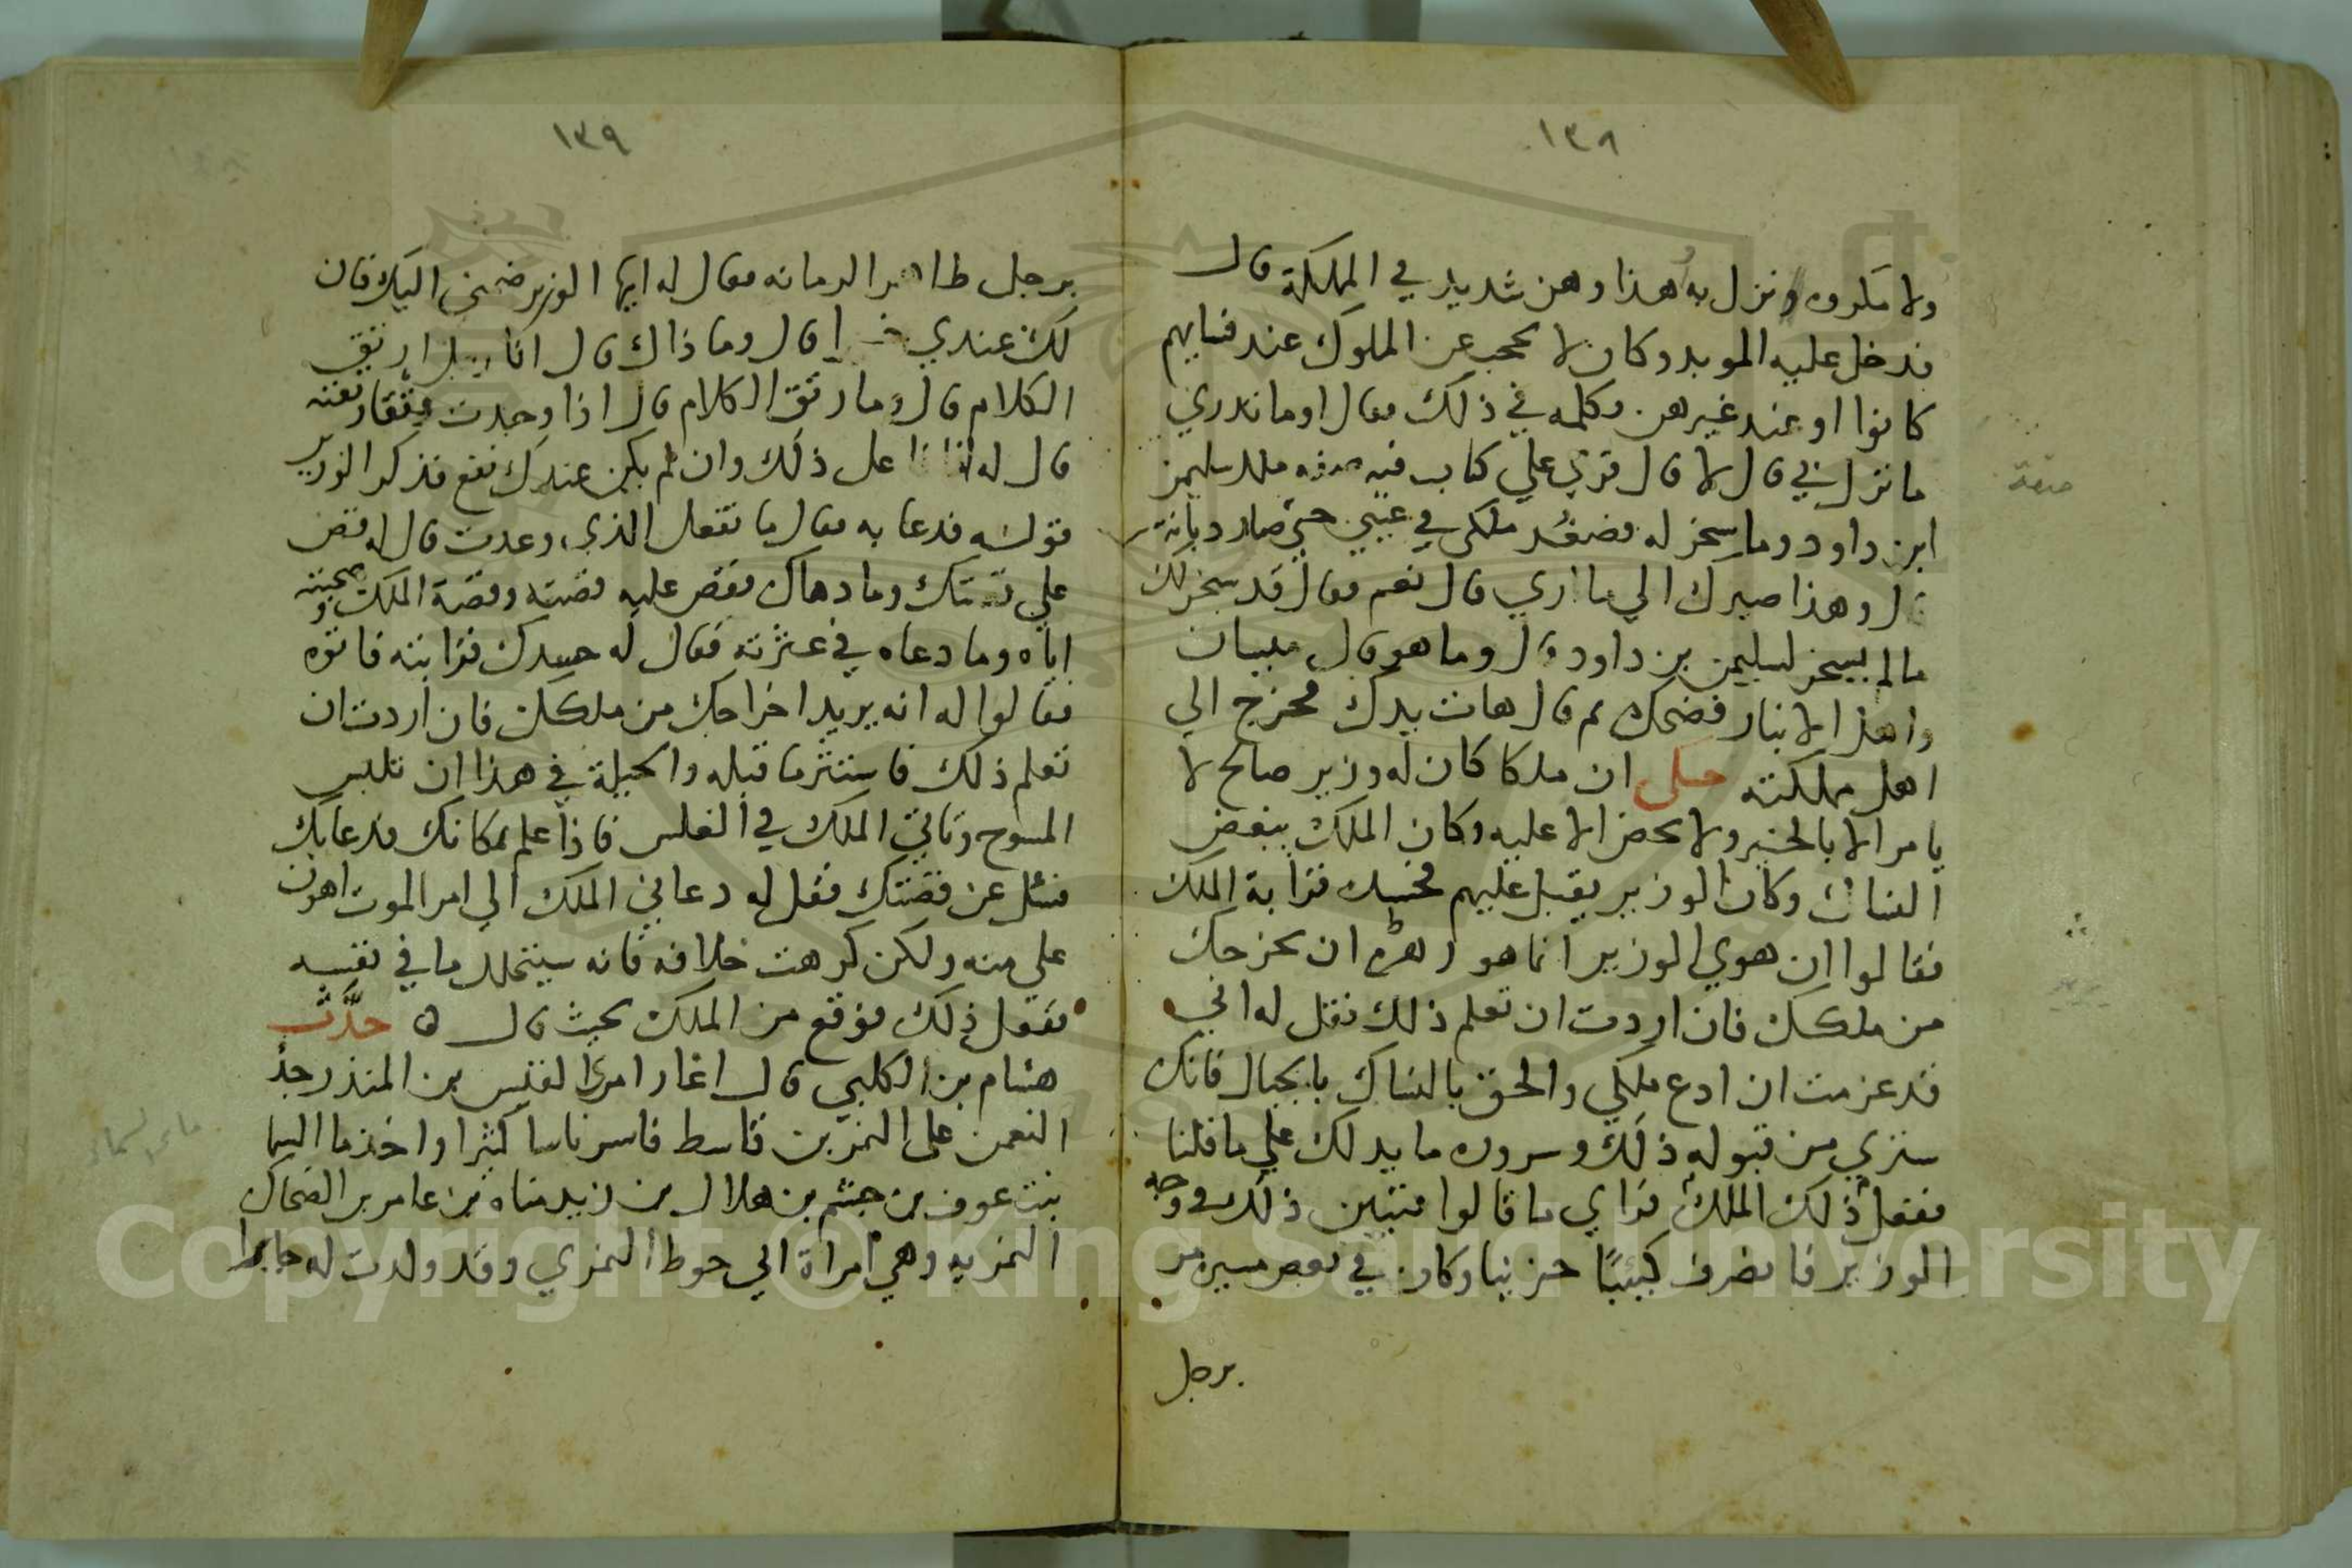 ١٣٨
ولا مكروه ونزل به هذا وهن شديد في المملكة قال
فدخل عليه الموبد وكان لا يحجب عن الملوك عند نسايهم
كانوا او عند غيرهن وكلمه في ذلك فقال اوما تدري
ما نزل بي قال لا قال قري علي كتاب فيه صفة ملك سليمن
ابن داود وما سخر له فصغر ملكي في عيني حتى صار
قال وهذا صيرك الي ما اري قال نعم فقال قد سخر لك
مالم يسخر لسليمن بن داود قال وما هو قال
واهل الانبار فضحك ثم قال هات بردك فخرج الي
اهل مملكته حكى ان ملكا كان له وزير صالح لا
يامر الا بالخير ولا يحض الا عليه وكان الملك يبغض
النساك وكان الوزير يقبل عليهم فحسده قرابة الملك
فقالوا ان هوي الوزير انما هو ان يخرجك
من ملكك فان اردت ان تعلم ذلك فقل له اني
قد عزمت ان ادع ملكي والحق بالنساك بالجبال فانك
ستري من قبوله ذلك وسروره ما يدلك علي ما قلنا
ففعل ذلك الملك فراي ما قالوا فتبين ذلك في وجه
الوزير فانصرف كئيبًا حزينا وكان في بعض مسيره مر
برجل
١٣٩
برجل ظاهر الزمانه فقال له ايها الوزير ضمني اليك فان
لك عندي قال وما ذاك قال انا رجل ارتق
الكلام قال وما رتق الكلام قال اذا وجدت فتقا رتقته
قال له انا افعل ذلك وان لم يكن عندك نفع فذكر الوزير
قوله فدعا به فقال ما تفعل الذي وعدت قال له قص
علي قصتك وما دهاك فقص عليه قصته وقصة الملك ومحبته
اياه وما دعاه في عشرته فقال له حسدك قرابته فاتوه
فقالوا له انه يريد اخراجك من ملكك فان اردت ان
تعلم ذلك فاستثر ما قبله والحيلة في هذا ان تلبس
المسوح وتاتي الملك في الغلس فاذا علم بمكانك فدعا بك
فسئل عن قصتك فقل له دعاني الملك الي امر الموت اهون
علي منه ولكن كرهت خلافه فانه سيتحلل ما في نفسه
ففعل ذلك فوقع من الملك بحيث قال ه حدّث
هشام بن الكلبي قال اغار امرؤ القيس بن المنذر جد
النعمن على النمر بن قاسط فاسر ناسا كثيرا واخذ ما السما
بنت عوف بن جشم بن هلال بن زيد مناه بن عامر بن الضحاك
النمريه وهي امراة ابي حوط النمري وقد ولدت له جابرا
Copyright © King Saud University